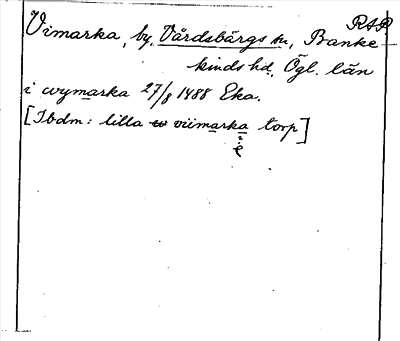 RAP
Vimarka, by, Vårdsbärgs sn, Banke-
kinds hd, Ögl. län
i wymarka 27/8 1488 Eka.
[Ibdm: lilla w viimarka torp]
e